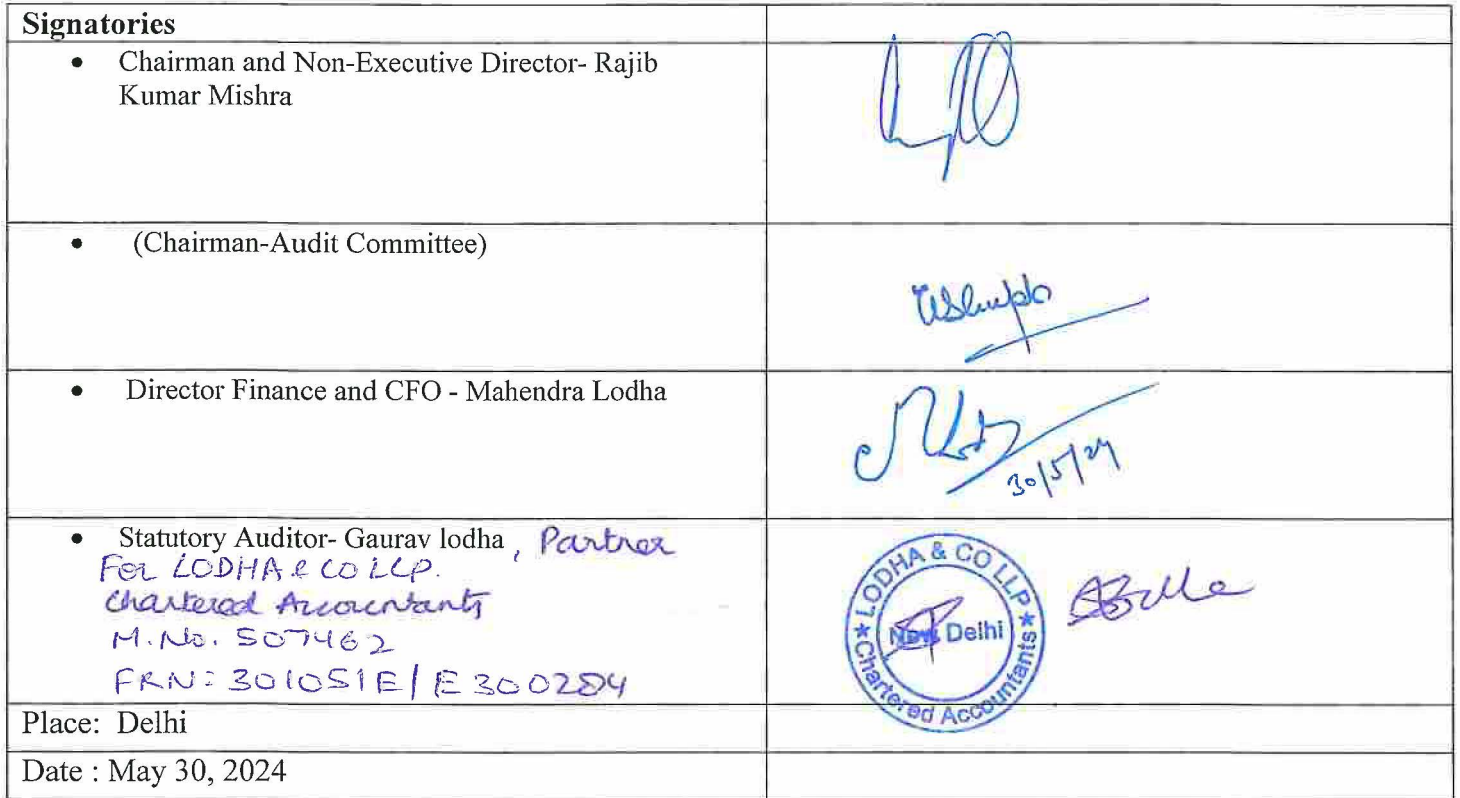 Signatories
• Chairman and Non-Executive Director- Rajib
Kumar Mishra
• (Chairman-Audit Committee)
• Director Finance and CFO - Mahendra Lodha
30/5/24
• Statutory Auditor- Gaurav lodha , Partner
For LODHA & CO LLP.
Chartered Accountants
M.No. 507462
FRN: 301051E/E300284
★ LODHA & CO LLP ★
New Delhi
Chartered Accountants
Place: Delhi
Date : May 30, 2024